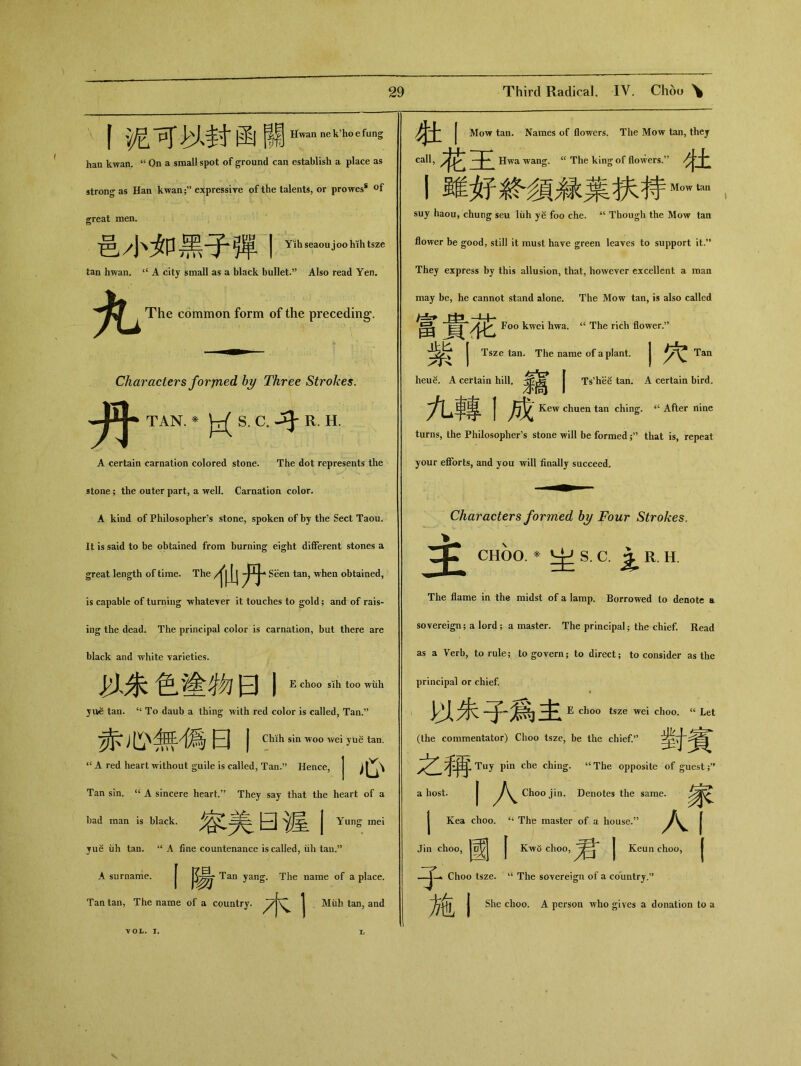 29 Third Radical. IV. Chòo 丶
丨泥可以封函關 Hwan ne k'ho e fung
han kwan. “ On a small spot of ground can establish a place as
strong as Han kwan;” expressive of the talents, or prowess of
great men.
邑小如黑子彈丨 Yih seaou joo hĭh tsze
tan hwan. “ A city small as a black bullet.” Also read Yen.
丸 The common form of the preceding.
Characters formed by Three Strokes.
丹 TAN. * S. C. R. H.
A certain carnation colored stone. The dot represents the
stone; the outer part, a well. Carnation color.
A kind of Philosopher's stone, spoken of by the Sect Taou.
It is said to be obtained from burning eight different stones a
great length of time. The 仙丹 Seen tan, when obtained,
is capable of turning whatever it touches to gold; and of rais-
ing the dead. The principal color is carnation, but there are
black and white varieties.
以朱色塗物曰丨 E choo sĭh too wŭh
yuĕ tan. “ To daub a thing with red color is called, Tan.”
赤心無僞曰丨 Chĭh sin woo wei yuĕ tan.
“ A red heart without guile is called, Tan.” Hence, 丨心
Tan sin. “ A sincere heart.” They say that the heart of a
bad man is black. 容美曰渥丨 Yung mei
yuĕ ŭh tan. “ A fine countenance is called, ŭh tan.”
A surname. 丨陽 Tan yang. The name of a place.
Tan tan, The name of a country. 木丨 Mŭh tan, and
VOL. I. L
牡丨 Mow tan. Names of flowers. The Mow tan, they
call, 花王 Hwa wang. “ The king of flowers.” 牡
丨雖好終須緑葉扶持 Mow tan
suy haou, chung seu lŭh yĕ foo che. “ Though the Mow tan
flower be good, still it must have green leaves to support it.”
They express by this allusion, that, however excellent a man
may be, he cannot stand alone. The Mow tan, is also called
富貴花 Foo kwei hwa. “ The rich flower.”
紫丨 Tsze tan. The name of a plant. 丨穴 Tan
heuĕ. A certain hill. 竊丨 Ts'hĕĕ tan. A certain bird.
九轉丨成 Kew chuen tan ching. “ After nine
turns, the Philosopher's stone will be formed;” that is, repeat
your efforts, and you will finally succeed.
Characters formed by Four Strokes.
主 CHÒO. * S. C. R. H.
The flame in the midst of a lamp. Borrowed to denote a
sovereign; a lord; a master. The principal; the chief. Read
as a Verb, to rule; to govern; to direct; to consider as the
principal or chief.
以朱子爲主 E choo tsze wei choo. “ Let
(the commentator) Choo tsze, be the chief.” 對賓
之稱 Tuy pin che ching. “ The opposite of guest;”
a host. 丨人 Choo jin. Denotes the same. 家
丨 Kea choo. “ The master of a house.” 人丨
Jin choo, 國丨 Kwŏ choo, 君丨 Keun choo, 丨
子 Choo tsze. “ The sovereign of a country.”
施丨 She choo. A person who gives a donation to a